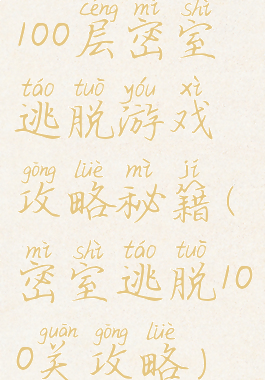 céng mì shì
100层密室
táo tuō yóu xì
逃脱游戏
gōng lüè mì jí
攻略秘籍(
mì shì táo tuō
密室逃脱10
guān gōng lüè
0关攻略)